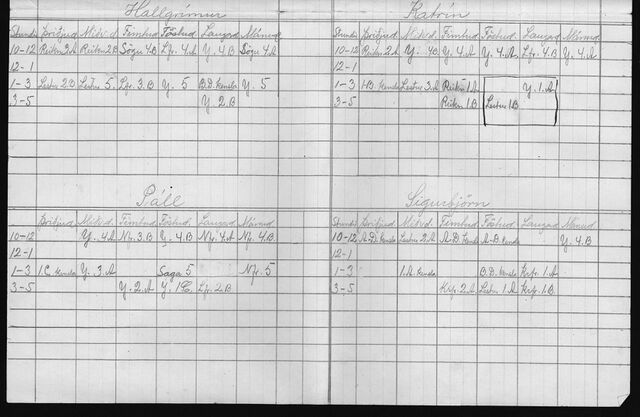 Hallgrímur
Stundir Þriðjud. Miðvd. Fimtud. Föstud. Laugad. Mánud.
10-12 Reikn 2.A Reikn 2.B Sögu 4.B Lfr. 4.B Y. 4.B Sögu 4.A
12-1
1-3 Lestur 2.B Lestur 5. Lfr. 3.B Y. 5 B.D. kensla Y. 5
3-5 Y. 2.B
Katrín
Stundir Þriðjud. Miðvd. Fimtud. Föstud. Laugad. Mánud.
10-12 Reikn 2.A Y. 4B Y. 4.A Y. 4.A Lfr. 4.B Y. 4.A
12-1
1-3 1B kensla Lestur 3.A Reikn 1.A Y. 1.A
3-5 Reikn 1.B Lestur 1.B
Páll
Þriðjud. Miðvd. Fimtud. Föstud. Laugad. Mánud.
10-12 Y. 4.A Nfr. 3.B Y. 4.B Nfr. 4.A Nfr. 4.B
12-1
1-3 1C kensla Y. 3.A Saga 5 Nfr. 5
3-5 Y. 2.A Y. 1C. Lfr. 2.B
Sigurbjörn
Stundir Þriðjud. Miðvd. Fimtud. Föstud. Laugad. Mánud.
10-12 A.D. kensla Lestur 2.A A.D. kensla A.D. kensla Y. 4.B
12-1
1-3 1.A. kensla B.D. kensla Krfr. 1.A
3-5 Krfr. 2.A Lestur 1.A Krfr. 1.B